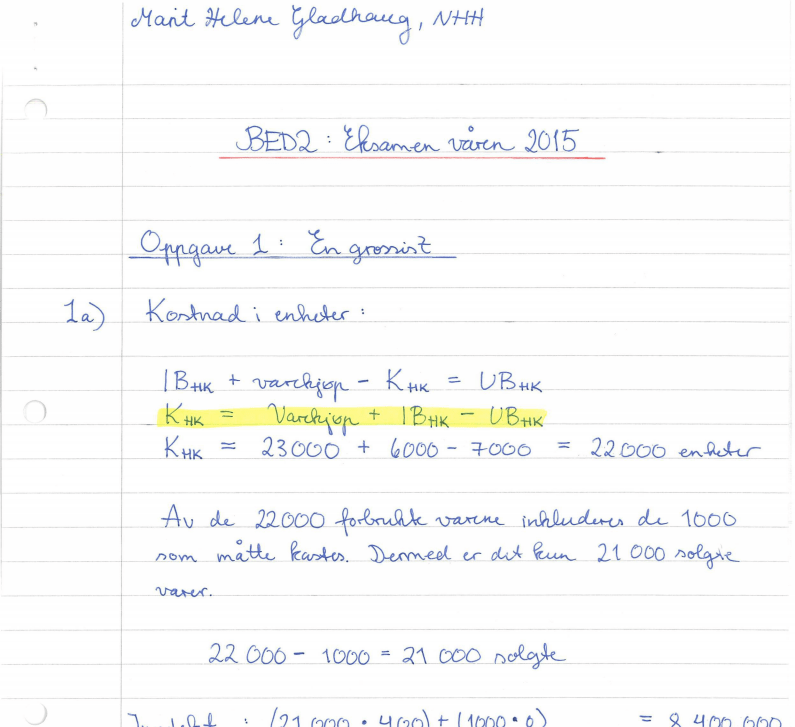 Marit Helene Gladhaug, NHH
BED2 : Eksamen våren 2015
Oppgave 1 : En grossist
1a) Kostnad i enheter :
IB_HK + varekjøp - K_HK = UB_HK
K_HK = Varekjøp + IB_HK - UB_HK
K_HK = 23000 + 6000 - 7000 = 22000 enheter
Av de 22000 forbrukte varene inkluderes de 1000
som måtte kastes. Dermed er det kun 21 000 solgte
varer.
22 000 - 1000 = 21 000 solgte
: (21 000 • 400) + (1000 • 0) = 8 400 000